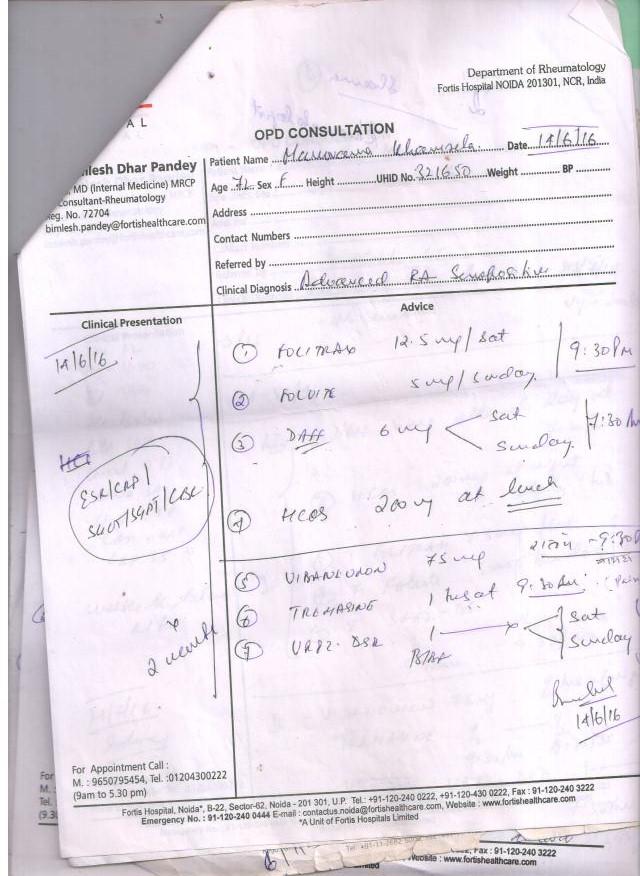 Department of Rheumatology
Fortis Hospital NOIDA 201301, NCR, India
A L
OPD CONSULTATION
lesh Dhar Pandey
MD (Internal Medicine) MRCP
onsultant-Rheumatology
eg. No. 72704
bimlesh.pandey@fortishealthcare.com
Patient Name Date 14/6/16
Age 72 Sex F Height UHID No. 321650 Weight BP
Address
Contact Numbers
Referred by
Clinical Diagnosis Advanced RA Seropositive
Clinical Presentation
Advice
14/6/16
① FOLITRAX 12.5 mg/Sat
9:30 PM
② FOLVITE 5 mg/Sunday
③ DAFF 6 mg Sat Sunday 7:30 AM
ESR/CRP/
SGOT/SGPT/CBC
④ HCQS 200 mg at lunch
⑤ 75 mg
⑥ 1 9:30 AM
⑦ DSR 1 Sat Sunday
BBF
14/6/16
For Appointment Call :
M. : 9650795454, Tel. :01204300222
(9am to 5.30 pm)
Fortis Hospital, Noida*, B-22, Sector-62, Noida - 201 301, U.P. Tel.: +91-120-240 0222, +91-120-430 0222, Fax : 91-120-240 3222
Emergency No. : 91-120-240 0444 E-mail : contactus.noida@fortishealthcare.com, Website : www.fortishealthcare.com
*A Unit of Fortis Hospitals Limited
For
M. :
Tel.
(9.3
Fax : 91-120-240 3222
Website : www.fortishealthcare.com